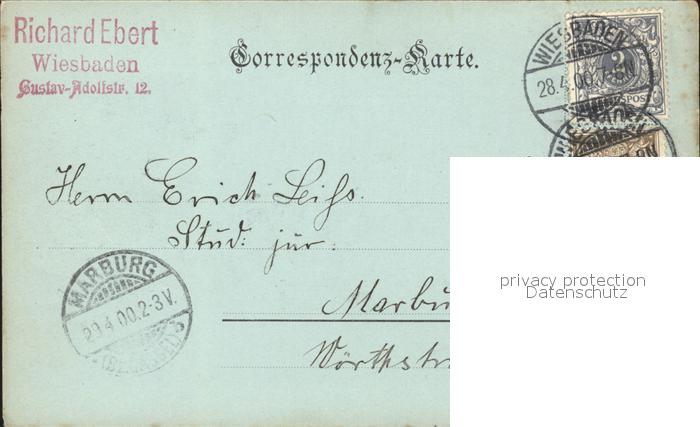 Richard Ebert
Wiesbaden
Gustav-Adolfstr. 12.
Correspondenz-Karte.
WIESBADEN
28.4.00.7-8N
3
POST
WIESBADEN
Herrn Erich Leiß.
Stud: jur:
MARBURG
29.4.00.2-3V.
Marbu
Wörthstr
privacy protection
Datenschutz